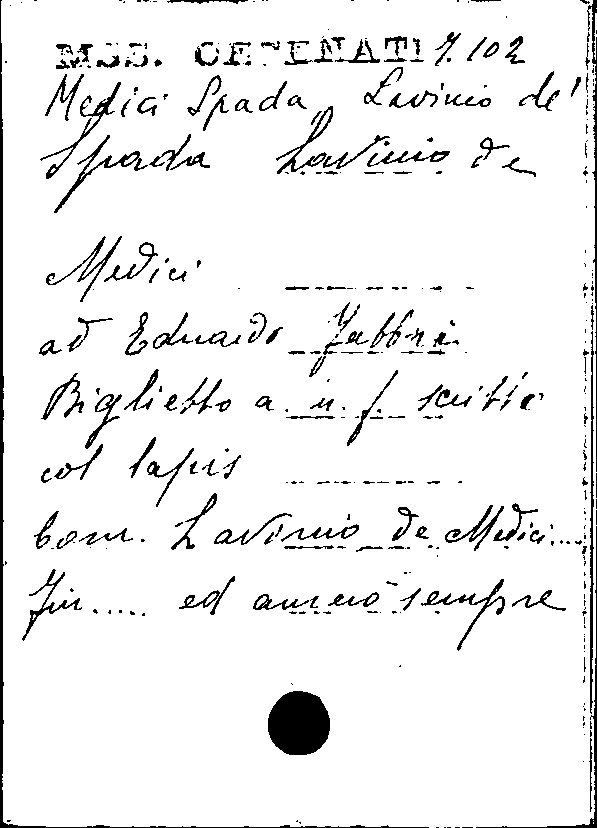 MSS. CESENATI 7.102
Medici Spada, Lavinio de'
Spada Lavinio de
Medici
ad Eduardo Fabbri
Biglietto a. n. f. scritto
col lapis
Com. Lavinio de Medici....
Fin..... ed amerò sempre